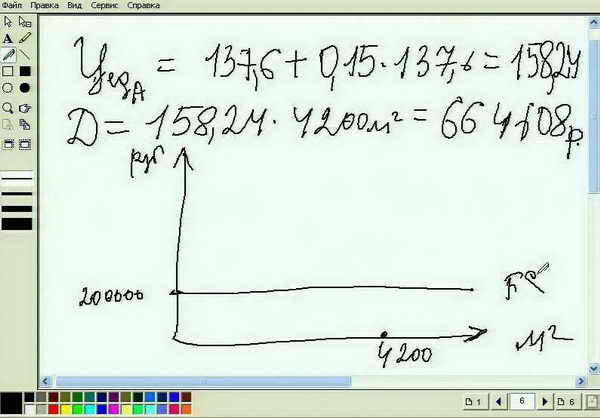 Файл Правка Вид Сервис Справка
Цед_A = 137,6 + 0,15 · 137,6 = 158,24
D = 158,24 · 4200 м² = 664608 р.
руб
200000
4200
м²
1 6 6